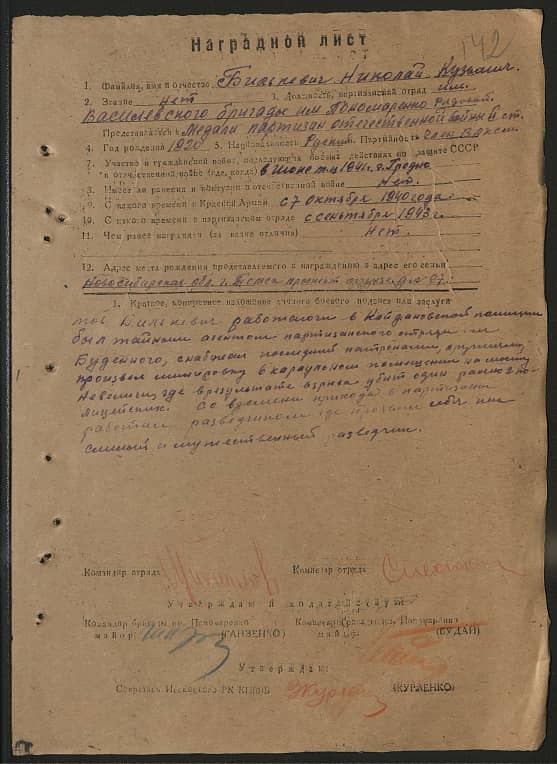 142
Наградной лист
1. Фамилия, имя и отчество Билькевич Николай Кузьмич.
2. Звание нет 3. Должность, партизанский отряд им.
Василевского бригады им Пономаренко Рядовой.
Представляется к Медали партизан отечественной войны II ст.
4. Год рождения 1920 5. Национальность Русский Партийность член ВЛКСМ.
7. Участие в гражданской войне, последующих боевых действиях по защите СССР
и отечественной войне (где, когда) в июне м-ц 1941 г. г. Гродно
8. Имеет ли ранения и контузии в отечественной войне Нет.
9. С какого времени в Красной Армии с 7 октября 1940 года.
10. С какого времени в партизанском отряде с сентября 1943 г.
11. Чем ранее награжден (за какие отличия) Нет.
12. Адрес места рождения представляемого к награждению и адрес его семьи
Новосибирская обл. г. Томск
1. Краткое, конкретное изложение личного боевого подвига или заслуги
тов Билькевич работая в Койдановской полиции
был тайным агентом партизанского отряда им
Буденного, снабжал последний патронами, оружием,
произвел минировку в караульном помещении на мосту
где в результате взрыва убит один ранено 2 по-
лицейских. Со времени прихода в партизаны
работал разведчиком где показал себя как
смелый и мужественный разведчик.
Командир отряда Комиссар отряда
Утверждаю и ходатайствую:
Командир бригады им. Пономаренко Комиссар бригады им. Пономаренко
майор (ГАНЗЕНКО) майор (БУДАЙ)
Утверждаю:
Секретарь РК КП(б)Б (КУРЛЕНКО)